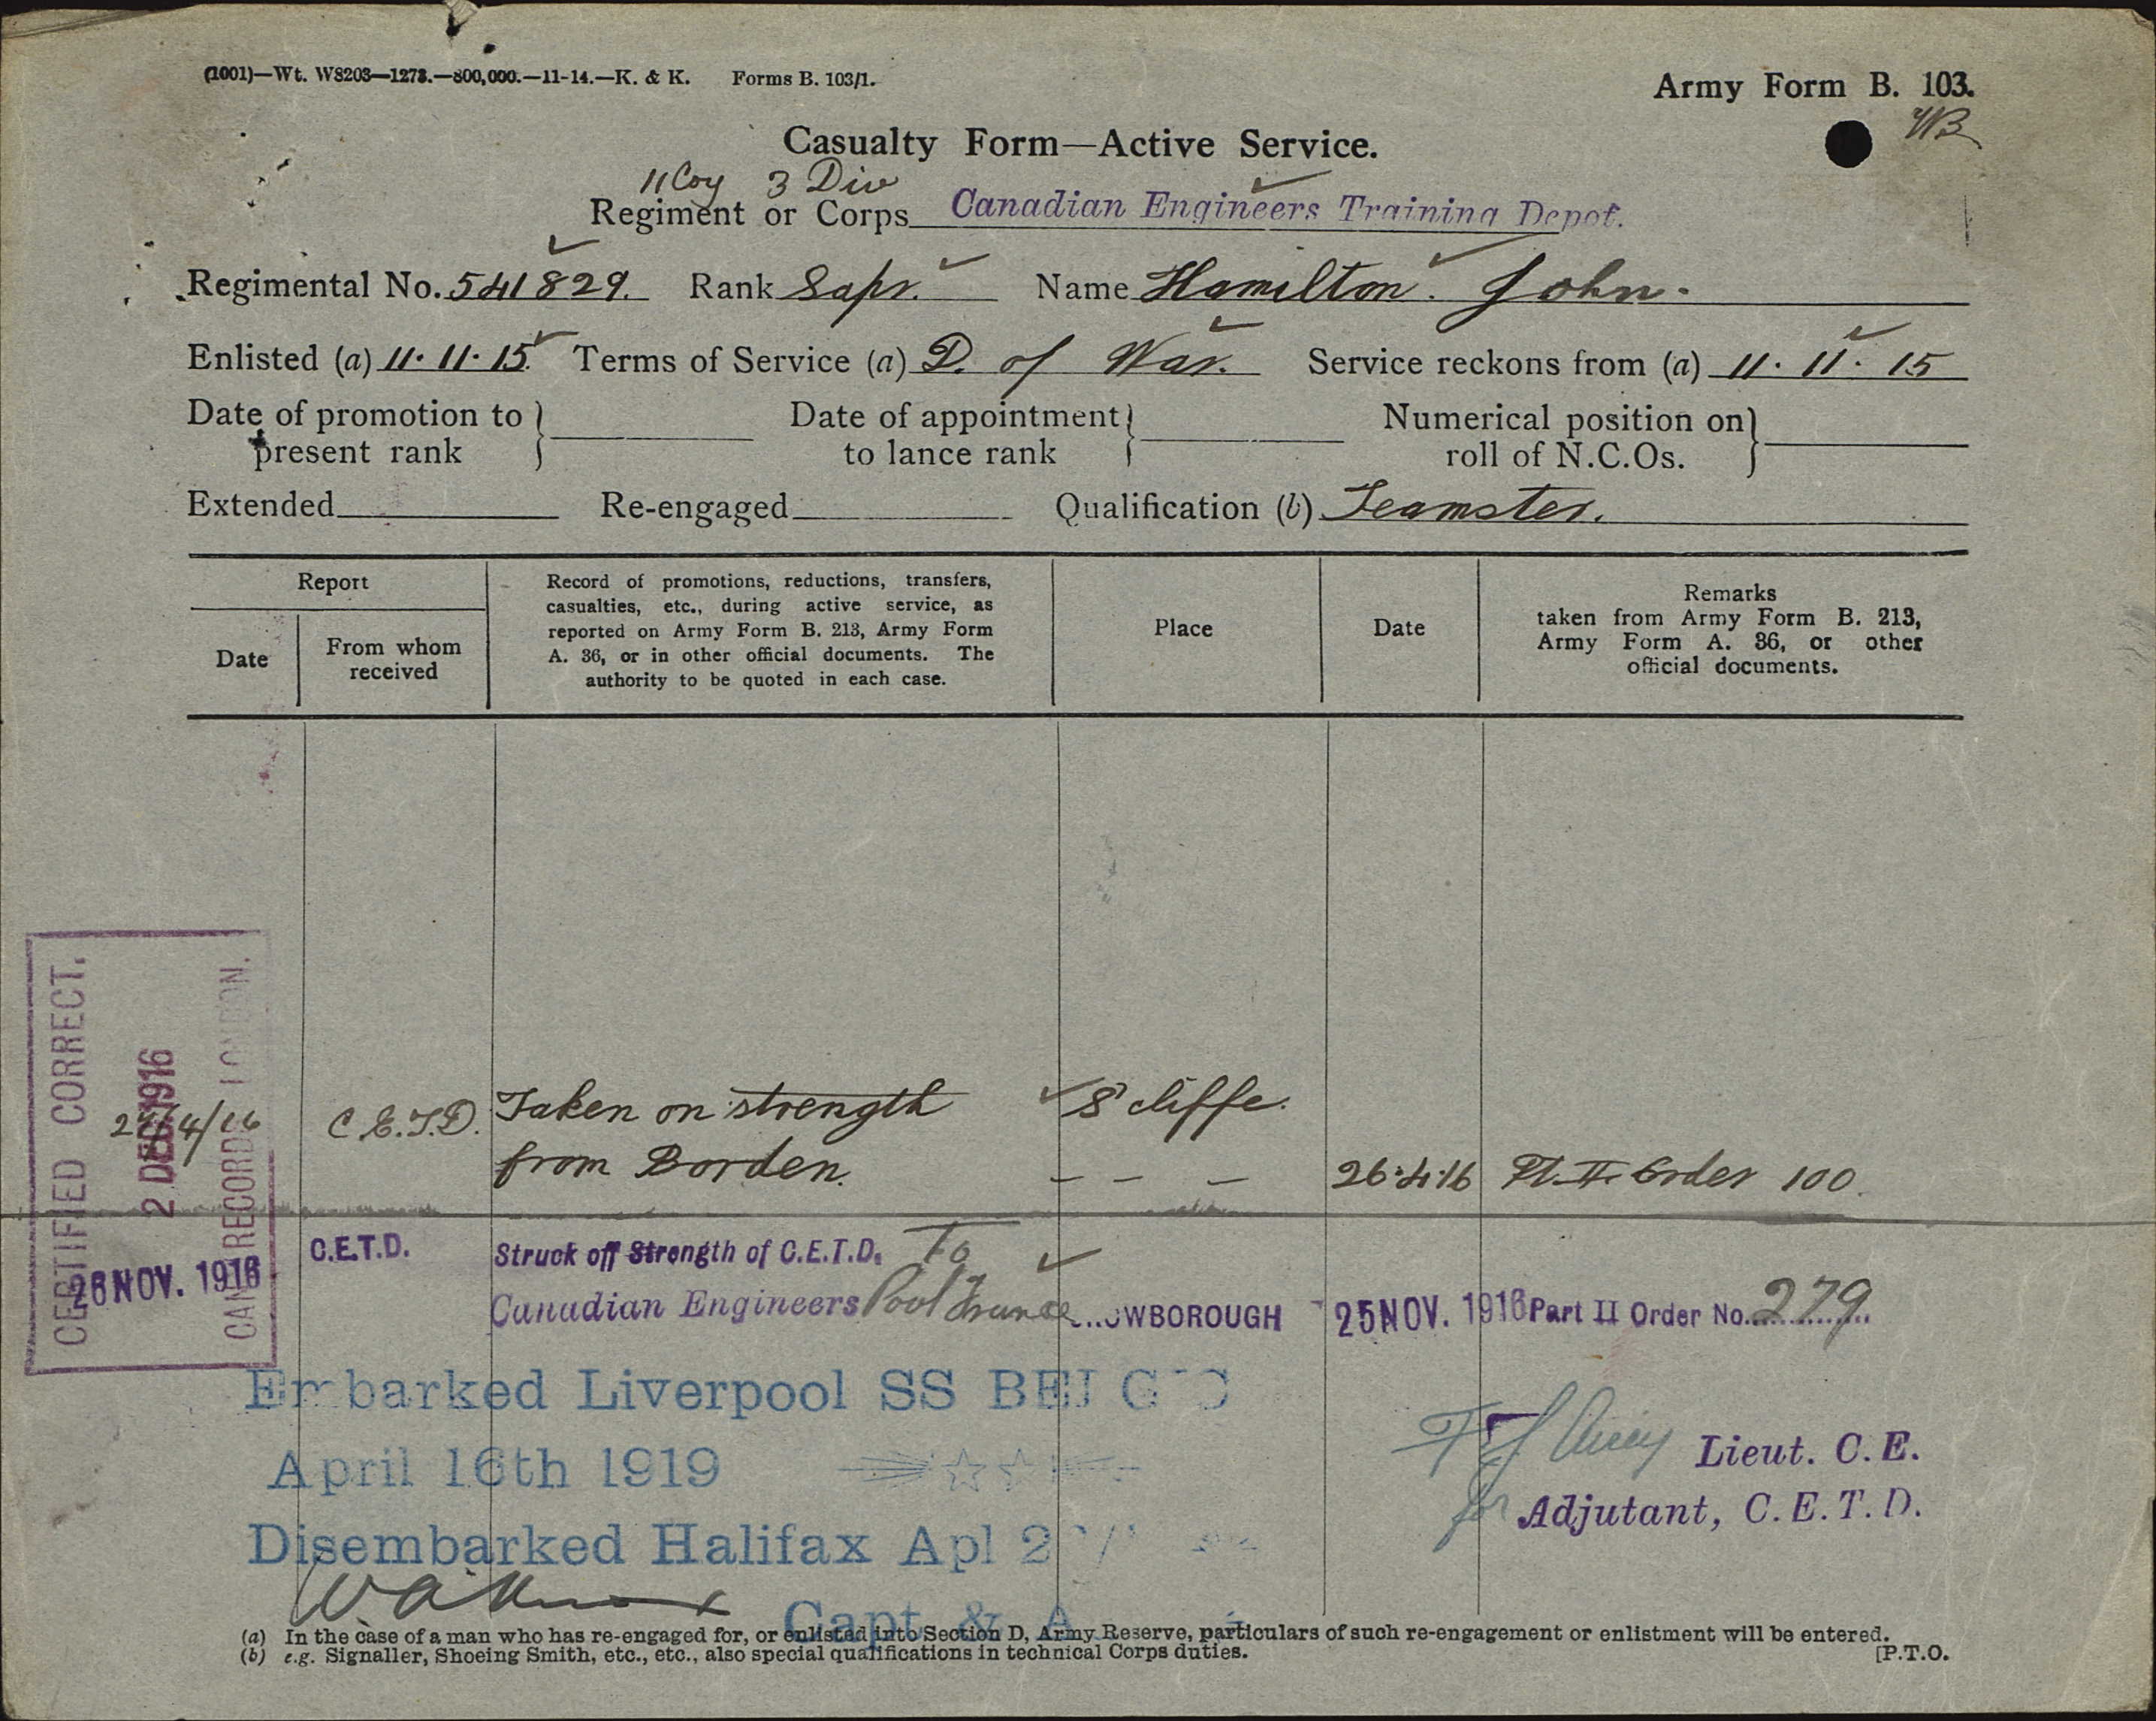 (1001)—Wt. W8203—1273.—800,000.—11-14.—K. & K. Forms B. 103/1.
Army Form B. 103.
Casualty Form—Active Service.
11 Coy 3 Div
Regiment or Corps Canadian Engineers Training Depot.
Regimental No. 541829. Rank Sapr. Name Hamilton. John.
Enlisted (a) 11.11.15 Terms of Service (a) D. of War. Service reckons from (a) 11.11.15
Date of promotion to present rank
Date of appointment to lance rank
Numerical position on roll of N.C.Os.
Extended Re-engaged Qualification (b) Teamster.
Report
Date
From whom received
Record of promotions, reductions, transfers,
casualties, etc., during active service, as
reported on Army Form B. 213, Army Form
A. 36, or in other official documents. The
authority to be quoted in each case.
Place
Date
Remarks
taken from Army Form B. 213,
Army Form A. 36, or other
official documents.
CERTIFIED CORRECT.
2 DEC 1916
CAN RECORDS LONDON.
C.E.T.D. Taken on strength S'cliffe.
from Borden. — — — 26.4.16 Pt. II Order 100.
26 NOV. 1916 C.E.T.D. Struck off Strength of C.E.T.D. To
Canadian Engineers Pool France 25 NOV. 1916 Part II Order No. 279
Embarked Liverpool SS BELGIC
April 16th 1919
Lieut. C.E.
for Adjutant, C.E.T.D.
Disembarked Halifax Apl 2
Capt. & A
(a) In the case of a man who has re-engaged for, or enlisted into Section D, Army Reserve, particulars of such re-engagement or enlistment will be entered.
(b) e.g. Signaller, Shoeing Smith, etc., etc., also special qualifications in technical Corps duties. [P.T.O.